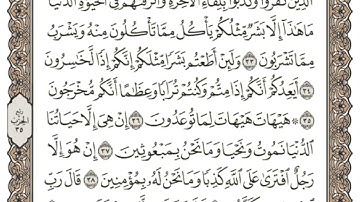 الَّذِينَ كَفَرُوا۟ وَكَذَّبُوا۟ بِلِقَآءِ ٱلْـَٔاخِرَةِ وَأَتْرَفْنَـٰهُمْ فِى ٱلْحَيَوٰةِ ٱلدُّنْيَا
مَا هَـٰذَآ إِلَّا بَشَرٌ مِّثْلُكُمْ يَأْكُلُ مِمَّا تَأْكُلُونَ مِنْهُ وَيَشْرَبُ
مِمَّا تَشْرَبُونَ ٣٣ وَلَئِنْ أَطَعْتُم بَشَرًا مِّثْلَكُمْ إِنَّكُمْ إِذًا لَّخَـٰسِرُونَ
٣٤ أَيَعِدُكُمْ أَنَّكُمْ إِذَا مِتُّمْ وَكُنتُمْ تُرَابًا وَعِظَـٰمًا أَنَّكُم مُّخْرَجُونَ
٣٥ ۞ هَيْهَاتَ هَيْهَاتَ لِمَا تُوعَدُونَ ٣٦ إِنْ هِىَ إِلَّا حَيَاتُنَا
ٱلدُّنْيَا نَمُوتُ وَنَحْيَا وَمَا نَحْنُ بِمَبْعُوثِينَ ٣٧ إِنْ هُوَ إِلَّا
رَجُلٌ ٱفْتَرَىٰ عَلَى ٱللَّهِ كَذِبًا وَمَا نَحْنُ لَهُۥ بِمُؤْمِنِينَ ٣٨ قَالَ رَبِّ
ربع
الحزب
٣٥